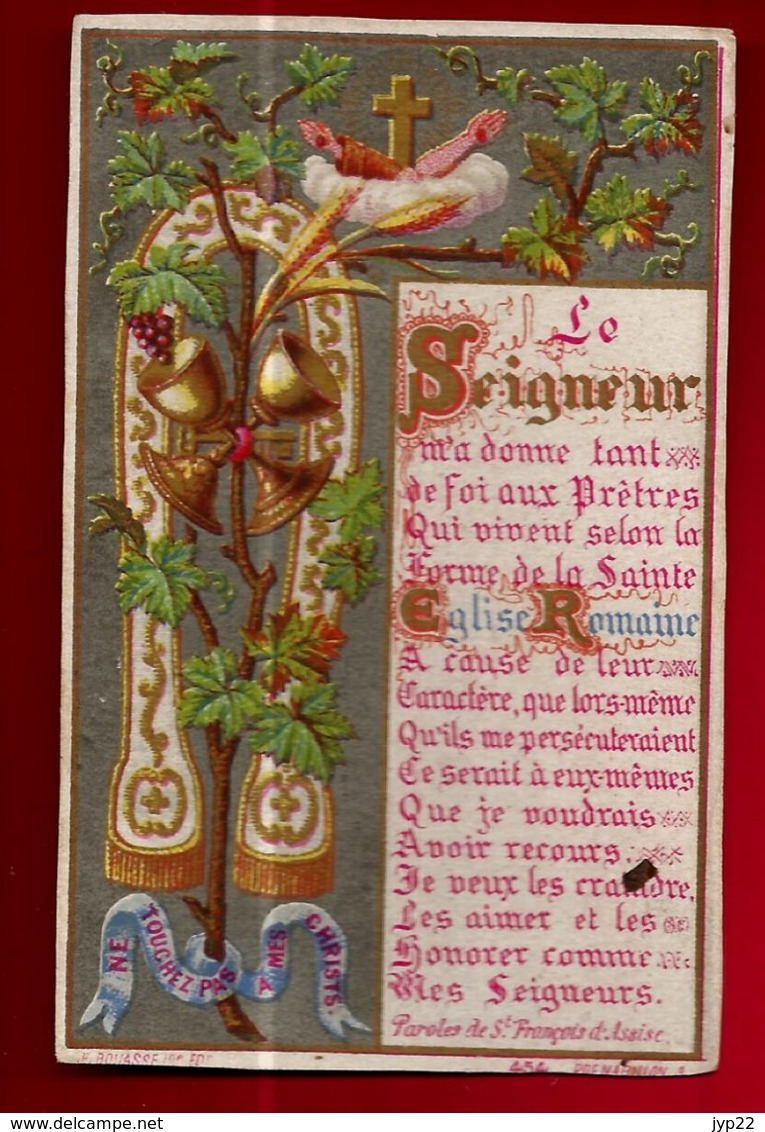 Le
Seigneur
m'a donne tant
de foi aux Prêtres
Qui vivent selon la
Forme de la Sainte
Eglise Romaine
A cause de leur
Caractère, que lors-même
Qu'ils me persécuteraient
Ce serait à eux-mêmes
Que je voudrais
Avoir recours.
Je veux les craindre,
Les aimer et les
Honorer comme
Mes Seigneurs.
Paroles de St François d'Assise.
NE TOUCHEZ PAS A MES CHRISTS.
454
jyp22